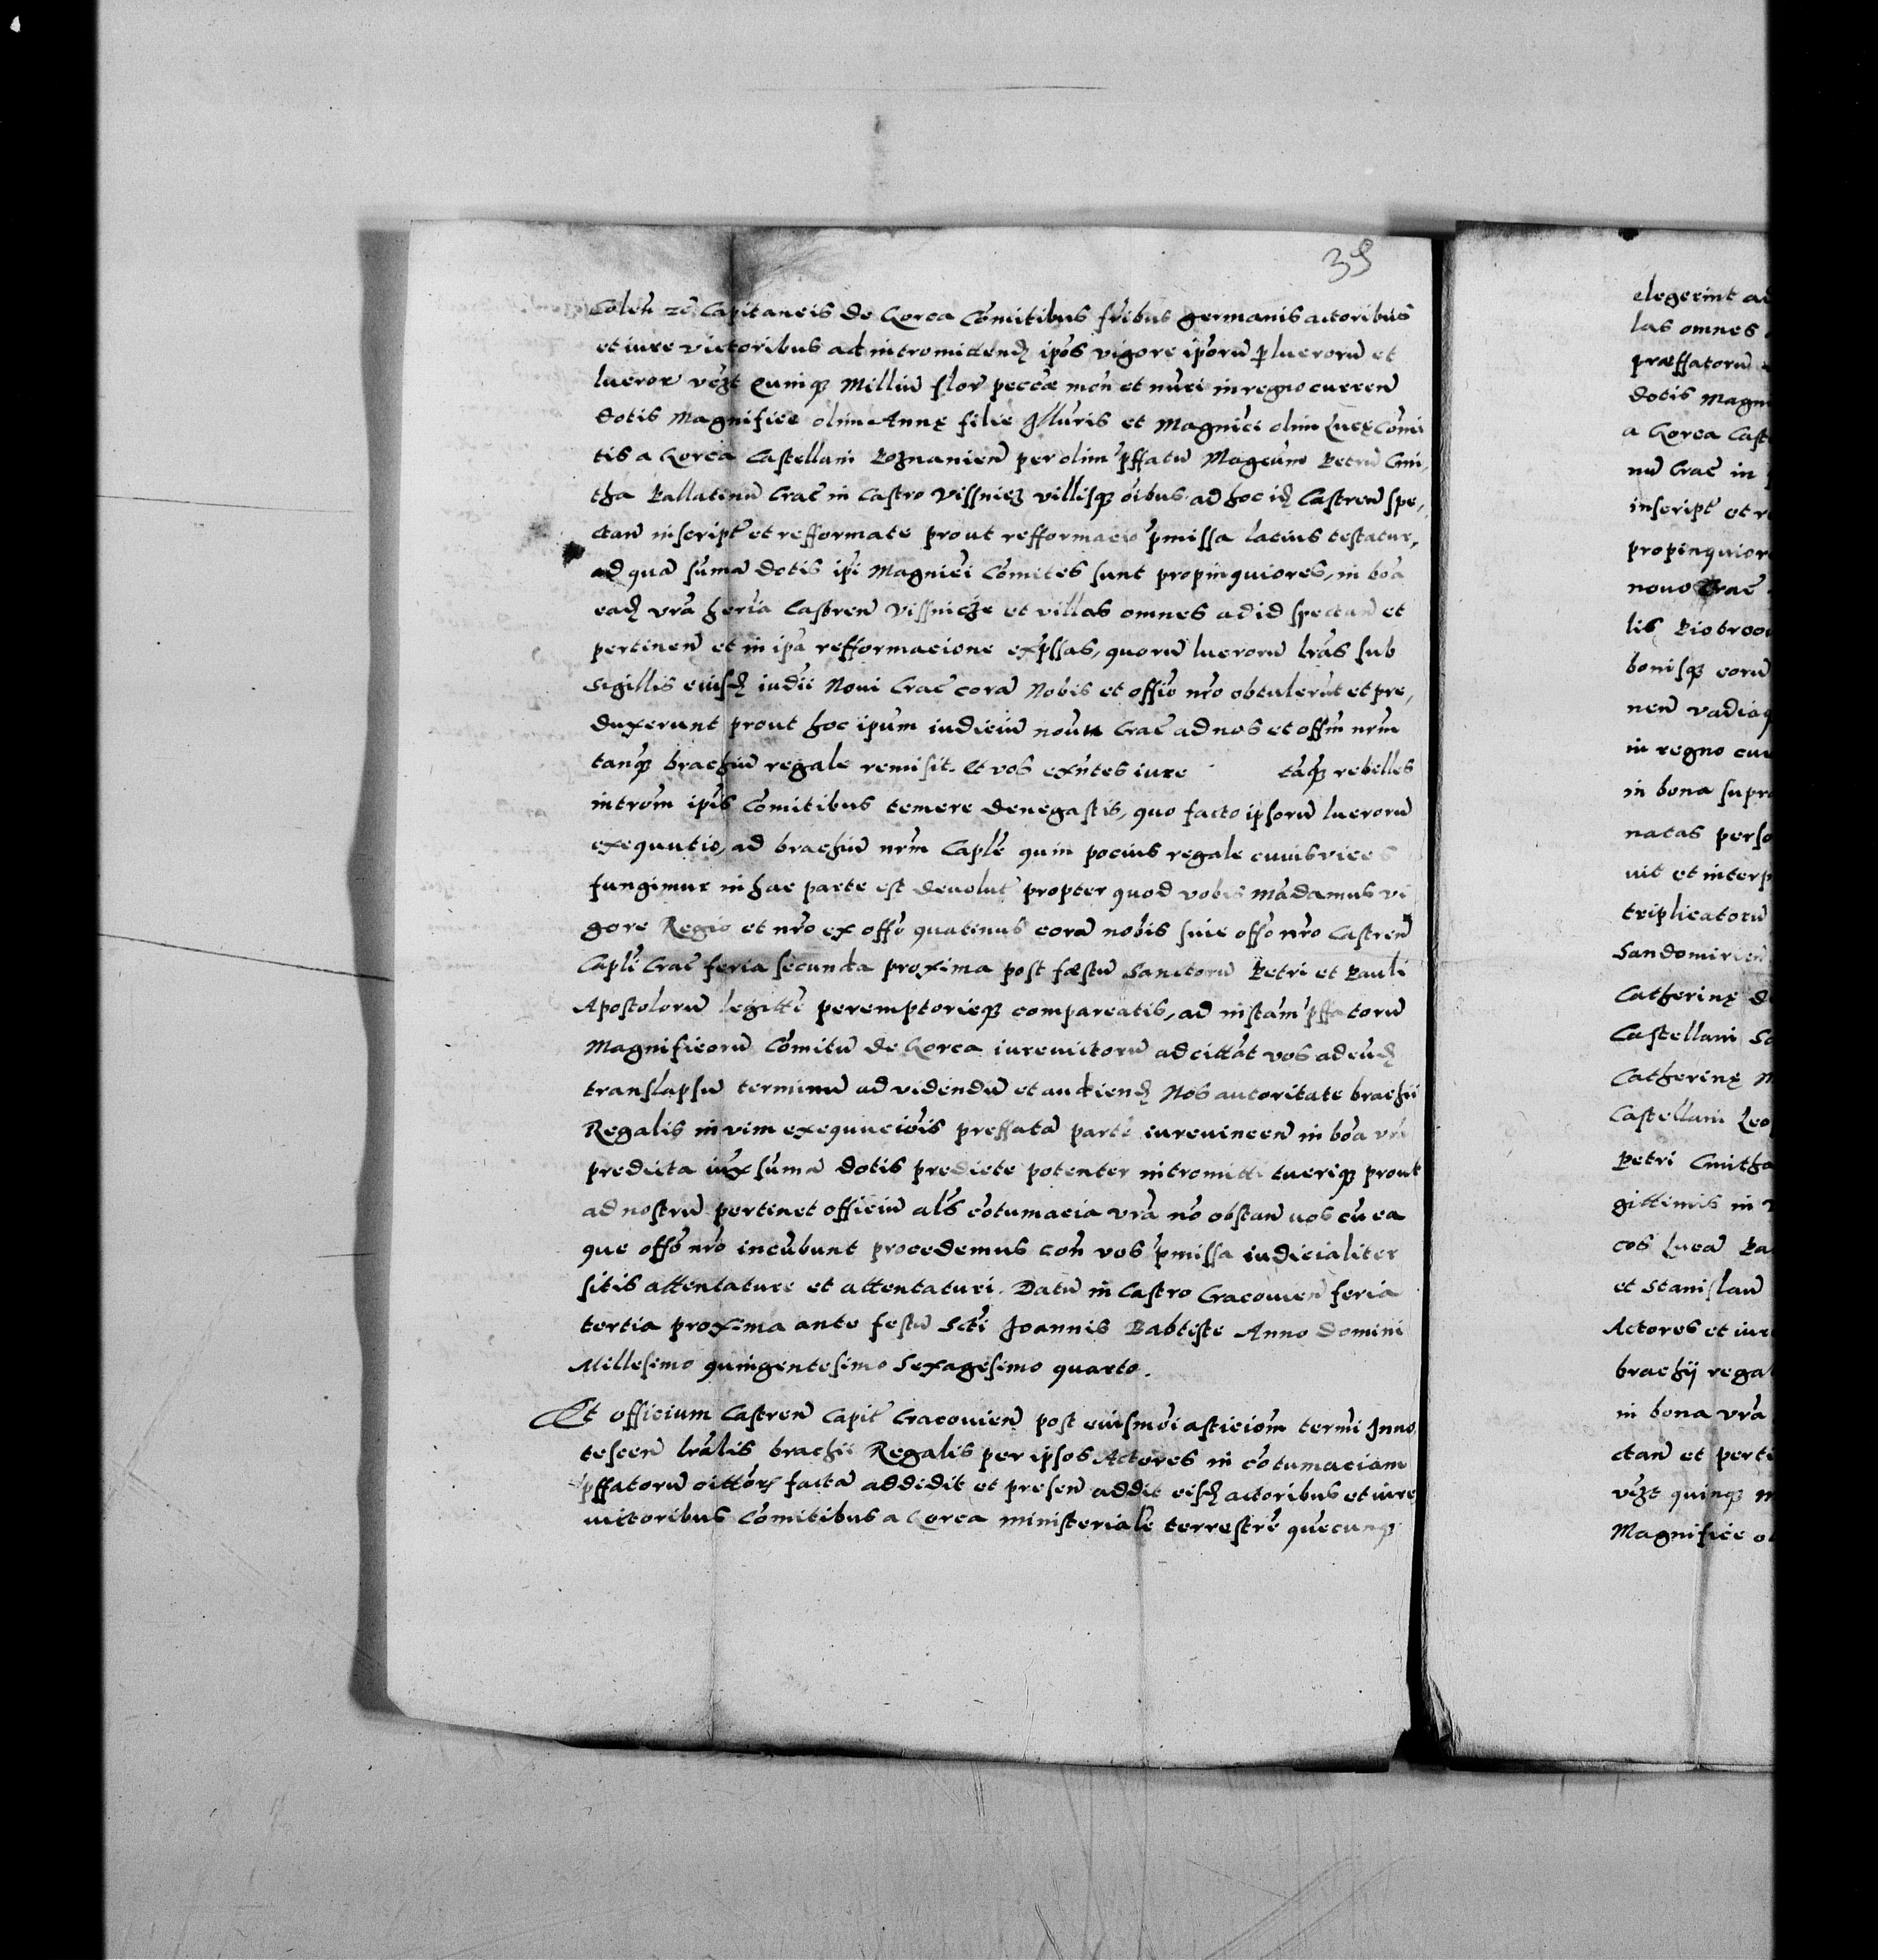 39
Coleñ zc̃ Capitaneis de Gorca Comitibus fribus germanis actoribus
et iure victoribus ad intromittend ipos vigore iporũ perlucrorũ et
lucrorum vizt Quinqȝ Milliũ flor pecc̃æ moñ et nũri in regno currenñ
dotis Magnifice olim Annę filie Illuris et Magnici olim Lucę Comi
tis a Gorca Castellani Poznanieñ per olim pffatũ Magcum Petrũ Cmi,
tha Pallatinũ Crac̃ in Castro Vissnicz villisqȝ oibus ad hoc id Castreñ spe,
ctañ inscript et refformate prout refformacio pmissa latius testatur,
ad quã sumã dotis ipi Magnici Comites sunt propinquiores, in boa
ead vra heria Castreñ Vissnicze et villas omnes ad id spectañ et
pertineñ et in ipa refformacione exprssas, quorũ lucrorũ lras sub
sigillis eiusd iudii Noui Crac̃ corã Nobis et offio nro obtulerũt et pre,
duxerunt prout hoc ipum iudiciũ nouũ Crac̃ ad nos et offm nrm
tanqȝ brachiũ regale remisit. Et vos exñtes iure tãqȝ rebelles
introm ipis Comitibus temere denegastis, quo facto ipsorũ lucrorũ
exequutio, ad brachiũ nrm Caple quin pocius regale cuius vices
fungimur in hac parte est deuolut propter quod vobis mãdamus vi
gore Regio et nro ex offo quatinus corã nobis siue offo nro Castreñ
Capli Crac̃ feria secunda proxima post fæstũ Sanctorũ Petri et Pauli
Apostolorũ legitte peremptorieqȝ compareatis, ad instam pffatorũ
Magnificorũ Comitũ de Gorca iureuictorũ ad cittat vos ad eũd
translapsũ terminũ ad videndũ et audiend Nos autoritate brachii
Regalis in vim exequuciois preffatã parte iureuinceñ in boa vra
predicta iux sumã dotis prediete potenter intromitti tueriqȝ prout
ad nostrũ pertinet officiũ als cotumacia vra no obstañ uos cũ ea
que offo nro incũbunt procedemus coñ vos pmissa iudicialiter
sitis attentature et attentaturi. Datũ in Castro Cracouieñ feria
tertia proxima ante festũ Scti Joannis Babtiste Anno Domini
Millesimo quingentesimo Sexagesimo quarto.
Et officium Castreñ Capit Cracouieñ post euismoi asticiom termi Inno,
tesceñ lralis brachii Regalis per ipsos Actores in cotumaciam
pffatorũ cittor factã addidit et preseñ addit eisd actoribus et iure
uictoribus Comitibus a Gorca ministeriale terrestre quecunqȝ
elegerint
las omnes
præffatorũ
dotis Magn
a Gorca Cast
nũ Crac̃ in
inscript et r
propinquior
nouo Crac̃
lis
bonisqȝ eorũ
neñ vadia
in regno cur
in bona supr
natas perso
uit et interp
triplicatorũ
Sandomirieñ
Catherinę d
Castellani Sa
Catherinę M
Castellani Leo
Petri Cmitha
gittimis in
cos Lucã
et Stanislaũ
Actores et iur
brachij rega
in bona vra
ctañ et perti
vizt quinqȝ m
Magnifice ol